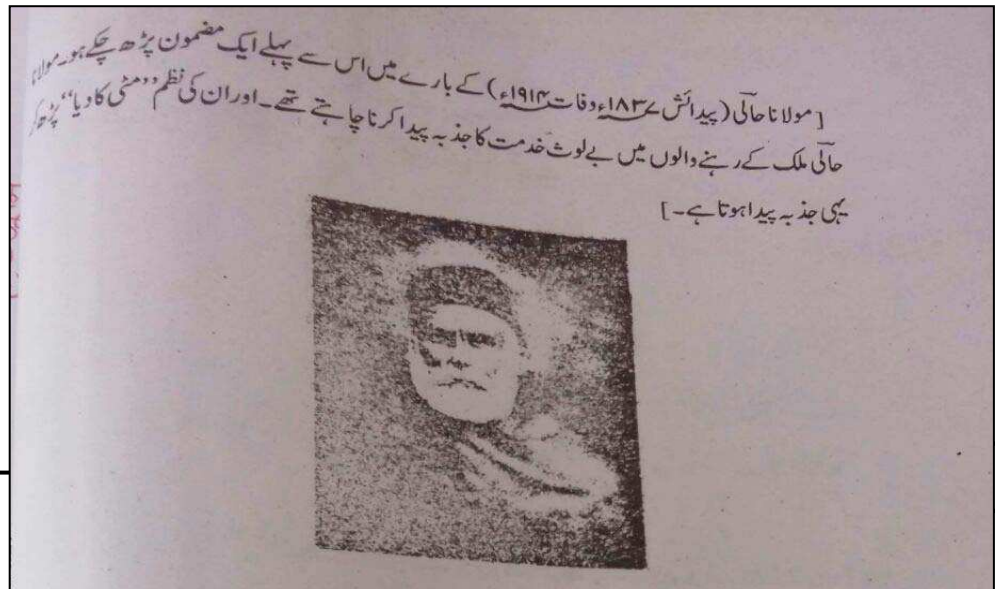 [مولانا حالی (پیدائش ۱۸۳۷ء وفات ۱۹۱۴ء) کے بارے میں اس سے پہلے ایک مضمون پڑھ چکے ہو۔ مولانا
حالی ملک کے رہنے والوں میں بے لوث خدمت کا جذبہ پیدا کرنا چاہتے تھے۔ اور ان کی نظم ”مٹی کا دیا“ پڑھ کر
یہی جذبہ پیدا ہوتا ہے۔]